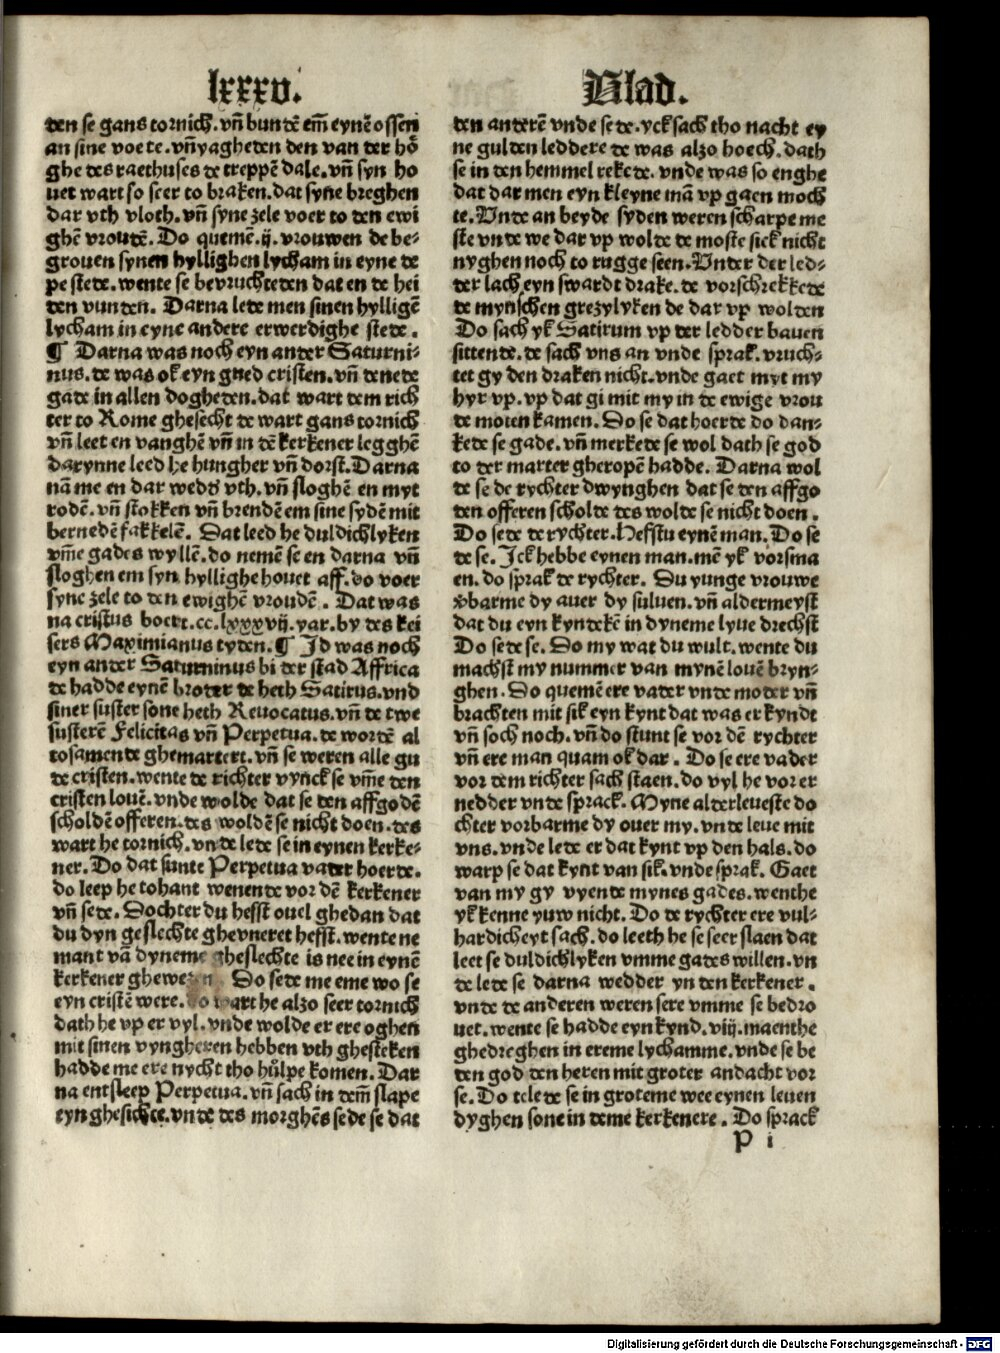 lxxxv. Blad.
den se gans tornich. vñ bundē em̄ eynē ossen
an sine voete. vñ yagheden den van der hö
ghe des raethuses de treppē dale. vñ syn ho
uet wart so seer to braken. dat syne breghen
dar vth vloth. vñ syne zele voer to den ewi
ghē vroudē. Do quemē .ij. vrouwen de be-
grouen synen hyllighen lycham in eyne de
pe stede. wente se bevruchteden dat en de hei
den vunden. Darna lede men sinen hylligē
lycham in eyne andere erwerdighe stede.
¶ Darna was noch eyn ander Saturni-
nus. de was ok eyn gued cristen. vñ denede
gade in allen dogheden. dat wart dem rich
ter to Rome ghesecht de wart gans tornich
vñ leet en vanghē vñ in dē kerkener legghē
darynne leed he hungher vñ dorst. Darna
nā me en dar weder vth. vñ sloghē en myt
rodē. vñ stokken vñ brendē em sine sydē mit
bernedē fakkelē. Dat leed he duldichlyken
vm̄e gades wyllē. do nemē se en darna vñ
sloghen em syn hyllighe houet aff. do voer
syne zele to den ewighē vroudē. Dat was
na cristus boert. cc.lxxxvij. yar. by des kei
sers Maximianus tyden. ¶ Id was noch
eyn ander Saturninus bi der stad Affrica
de hadde eynē broder de heth Satirus. vnd
siner suster sone heth Reuocatus. vñ de twe
susterē Felicitas vñ Perpetua. de wordē al
tosamende ghemartert. vñ se weren alle gu
de cristen. wente de richter vynck se vm̄e den
cristen louē. vnde wolde dat se den affgodē
scholdē offeren. des woldē se nicht doen. des
wart he tornich. vnde lede se in eynen kerke-
ner. Do dat sunte Perpetua vader hoerde.
do leep he tohant wenende vor dē kerkener
vñ sede. Dochter du hefst ouel ghedan dat
du dyn geslechte ghevneret hefst. wente ne
mant vā dyneme gheslechte is nee in eynē
kerkener ghewezen. Do sede me eme wo se
eyn cristē were. do wart he alzo seer tornich
dath he vp er vyl. vnde wolde er ere oghen
mit sinen vyngheren hebben vth ghesteken
hadde me ere nycht tho hůlpe komen. Dar
na entsleep Perpetua. vñ sach in dem̄ slape
eyn ghesichte. vnde des morghēs sede se dat
den anderē vnde sede. yck sach tho nacht ey
ne gulden leddere de was alzo hoech. dath
se in den hemmel rekede. vnde was so enghe
dat dar men eyn kleyne mā vp gaen moch
te. Vnde an beyde syden weren scharpe me
ste vnde we dar vp wolde de moste sick nicht
nyghen noch to rugge seen. Vnder der led-
der lach eyn swardt drake. de vorschrekkede
de mynschen grezylyken de dar vp wolden
Do sach yk Satirum vp der ledder bauen
sittende. de sach vns an vnde sprak. vruch-
tet gy den draken nicht. vnde gaet myt my
hyr vp. vp dat gi mit my in de ewige vrou
de moten kamen. Do se dat hoerde do dan-
kede se gade. vñ merkede se wol dath se god
to der marter gheropē hadde. Darna wol
de se de rychter dwynghen dat se den affgo
den offeren scholde des wolde se nicht doen.
Do sede de rychter. Hefstu eynē man. Do se
de se. Ick hebbe eynen man. mē yk vorsma
en. do sprak de rychter. Du yunge vrouwe
vbarme dy auer dy suluen. vñ aldermeyst
dat du eyn kyndekē in dyneme lyue drechst
Do sede se. Do my wat du wult. wente du
machst my nummer van mynē louē bryn-
ghen. Do quemē ere vader vnde moder vñ
brachten mit sik eyn kynt dat was er kyndt
vñ soch noch. vñ do stunt se vor dē rychter
vñ ere man quam ok dar. Do se ere vader
vor dem richter sach staen. do vyl he vor er
nedder vnde sprack. Myne alderleueste do
chter vorbarme dy ouer my. vnde leue mit
vns. vnde lede er dat kynt vp den hals. do
warp se dat kynt van sik. vnde sprak. Gaet
van my gy vyende mynes gades. wenthe
yk kenne yuw nicht. Do de rychter ere vul-
hardicheyt sach. do leeth he se seer slaen dat
leet se duldichlyken vmme gades willen. vn
de lede se darna wedder yn den kerkener.
vnde de anderen weren sere vmme se bedro
uet. wente se hadde eyn kynd. viij. maenthe
ghedreghen in ereme lychamme. vnde se be
den god den heren mit groter andacht vor
se. Do telede se in groteme wee eynen leuen
dyghen sone in deme kerkenere. Do sprack
P i
Digitalisierung gefördert durch die Deutsche Forschungsgemeinschaft - DFG